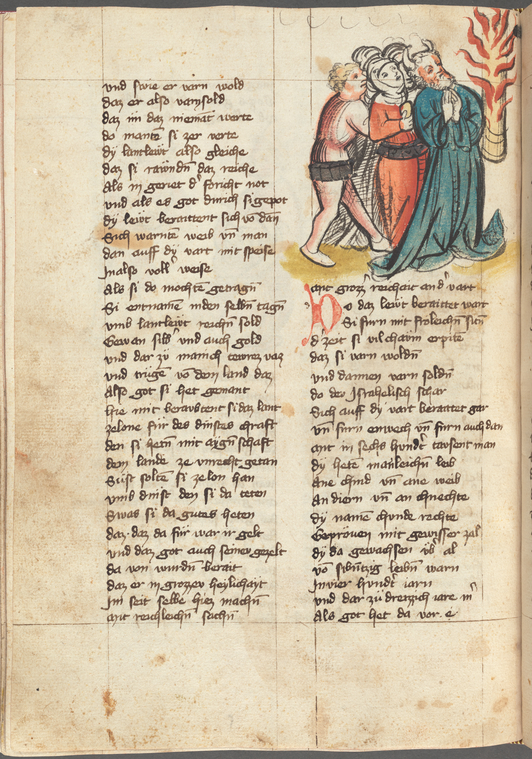 vnd swie er varn wold
daz er also varn sold
daz im daz niemat werte
do mante si zer verte
dy lantlewt also gleiche
daz si rawmdn daz reiche
Als in geriet d' foricht not
vnd als es got durich si gepot
dy lewt beraittent sich vo dan
Sich warnte weib vn man
dan auff dy vart mit speise
In also voll' weise
Als si do mochte getragn
Si entname in den selbn tagn
vmb lantlewt reichn sold
Gewan silb' vnd auch gold
vnd dar zu manich
vnd trugē vo dem land daz
Also got si het gemant
hie mit beraubtent si daz lant
zelone für des dinstes chraft
den si hetn mit aygn schaft
dem lande ze vnrecht getan
Sust solte si zelon han
vmb dinst den si da teten
Swas si da gutes heten
daz daz da für war ir gelt
vnd daz got auch seinew gezelt
da von wurdn berait
daz er in grozzer heylichayt
Im seit selbe hiez machn
mit reichleichn sachn
mit grozz' reichait and' vart
Do daz lewt beraittet wart
Si furn mit frôleichn sitn
d' zeit si vil chawm erpite
daz si varn woldn
vnd dannen varn soldn
do der Israhelisch schar
Sich auff dy vart beraittet gar
vn furn enwech vn furn auch dan
mit in sechs hundt' tawsent man
dy hete manleichn leib
Ane chind vn ane weib
An diern vn an chnechte
dy name chunde rechte
Geprôuen mit gewisser zal
dy da gewachsen vb' al
vo sibntzig leibn warn
In vier hundt' iarn
vnd dar zu dreizzich iare in
Als got het da vor e